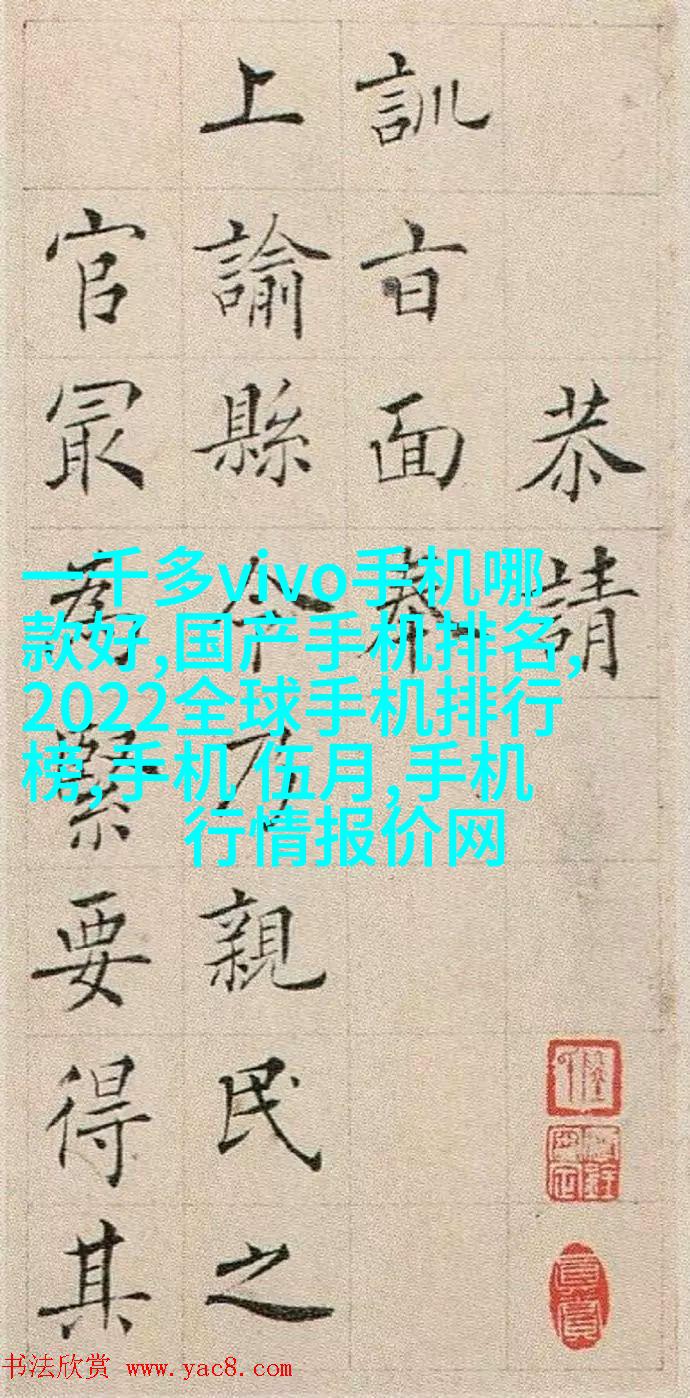 恭請
訓㫖面奉
上諭縣令乃親民之
官冣為緊要得其
一千多vivo手机哪
款好,国产手机排名,
2022全球手机排行
榜,手机 伍月,手机
行情报价网
书法欣赏 www.yac8.com